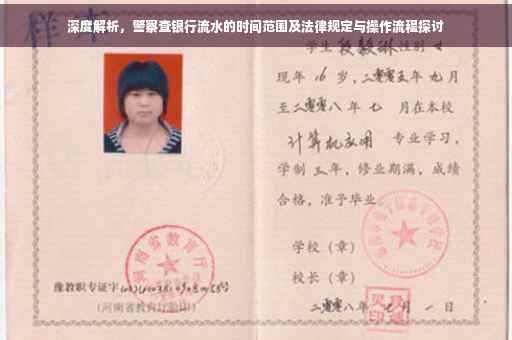 深度解析，警察查银行流水的时间范围及法律规定与操作流程探讨
样本
学生段毅琳性别女
现年16岁，二零零五年九月
至二零零八年七月在本校
计算机应用 专业学习，
学制三年，修业期满，成绩
合格，准予毕业
学校（章）
校长（章）
二零零八年七月一日
河南省教育厅
豫教职专证字
（河南省教育厅验印）